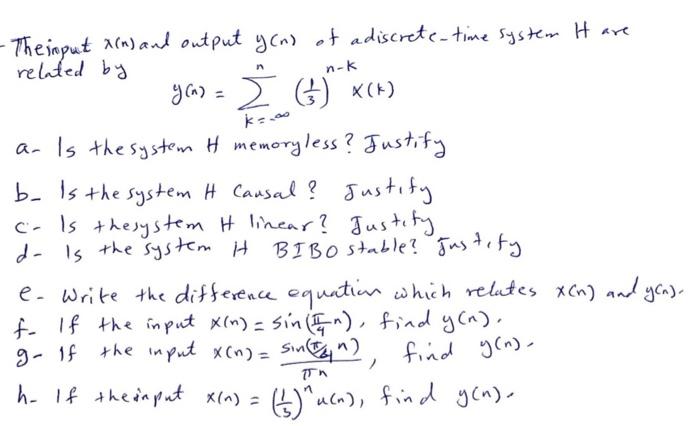 - The input x(n) and output y(n) of a discrete-time system H are
related by
y(n) = ∑_{k=-∞}^{n} (1/3)^{n-k} x(k)
a- Is the system H memoryless? Justify
b- Is the system H Causal? Justify
c- Is the system H linear? Justify
d- Is the system H BIBO stable? Justify
e- Write the difference equation which relates x(n) and y(n).
f- If the input x(n) = sin(π/4 n), find y(n).
g- If the input x(n) = sin(π/4 n)/πn, find y(n).
h- If the input x(n) = (1/3)^n u(n), find y(n).